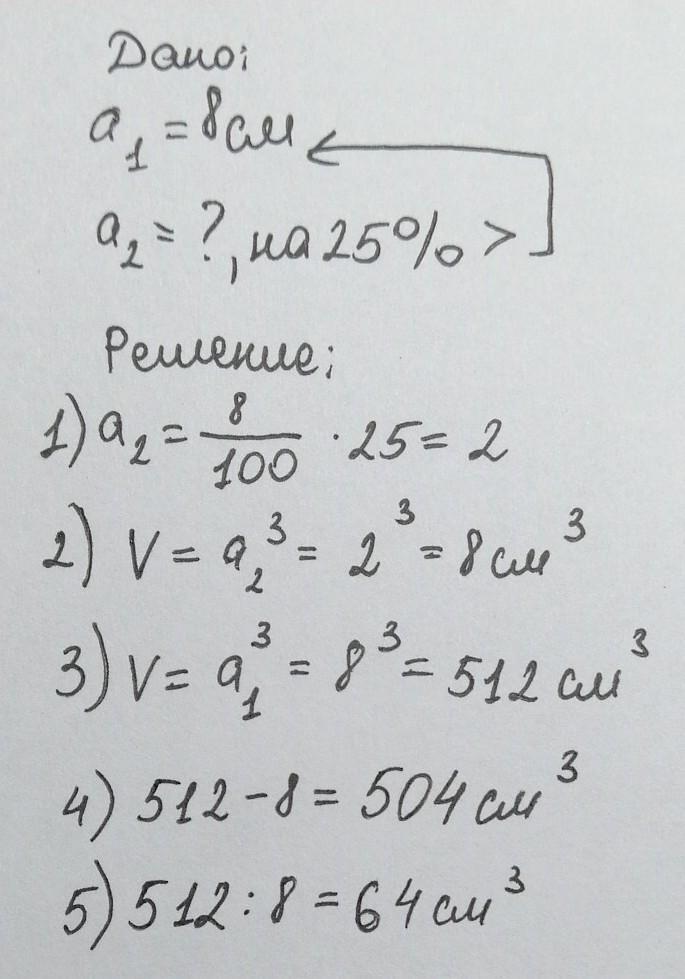 Дано:
a₁ = 8см
a₂ = ?, на 25% >
Решение:
1) a₂ = 8/100 · 25 = 2
2) V = a₂³ = 2³ = 8 см³
3) V = a₁³ = 8³ = 512 см³
4) 512 - 8 = 504 см³
5) 512 : 8 = 64 см³